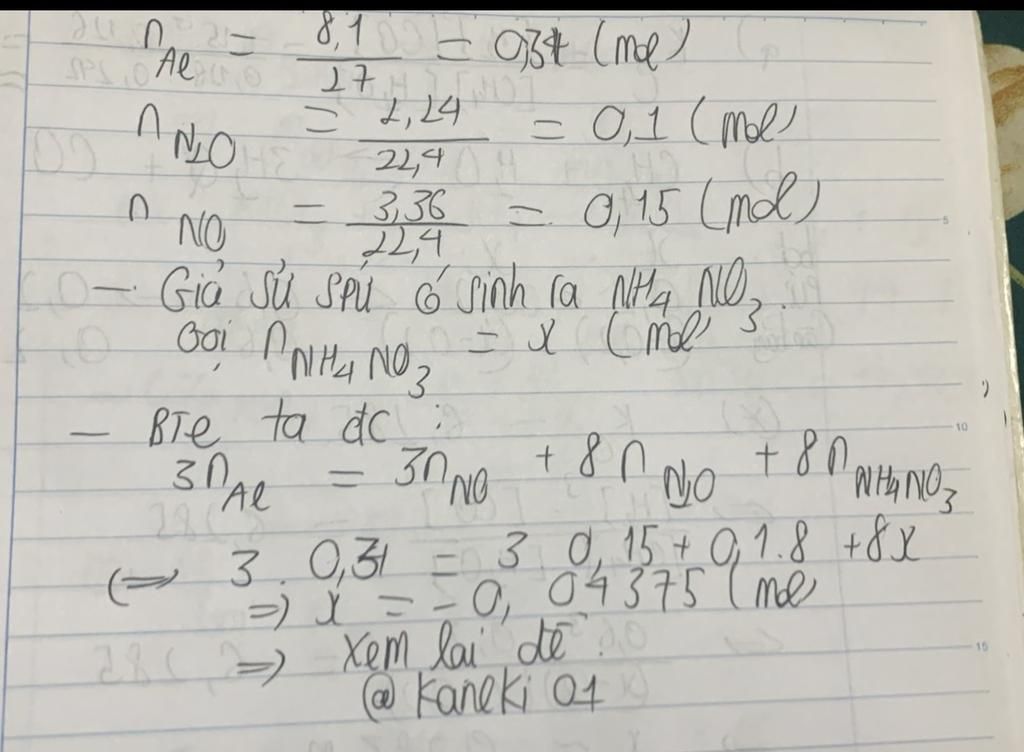 nAl = 8,1/27 = 0,31 (mol)
nN2O = 2,24/22,4 = 0,1 (mol)
nNO = 3,36/22,4 = 0,15 (mol)
- Giả sử spứ có sinh ra NH4NO3.
Gọi nNH4NO3 = x (mol)
- BTe ta dc :
3nAl = 3nNO + 8nN2O + 8nNH4NO3
<=> 3. 0,31 = 3 0,15 + 0,1.8 + 8x
=> x = -0,04375 (mol
=> xem lại đề.
@kaneki 01
5
10
15